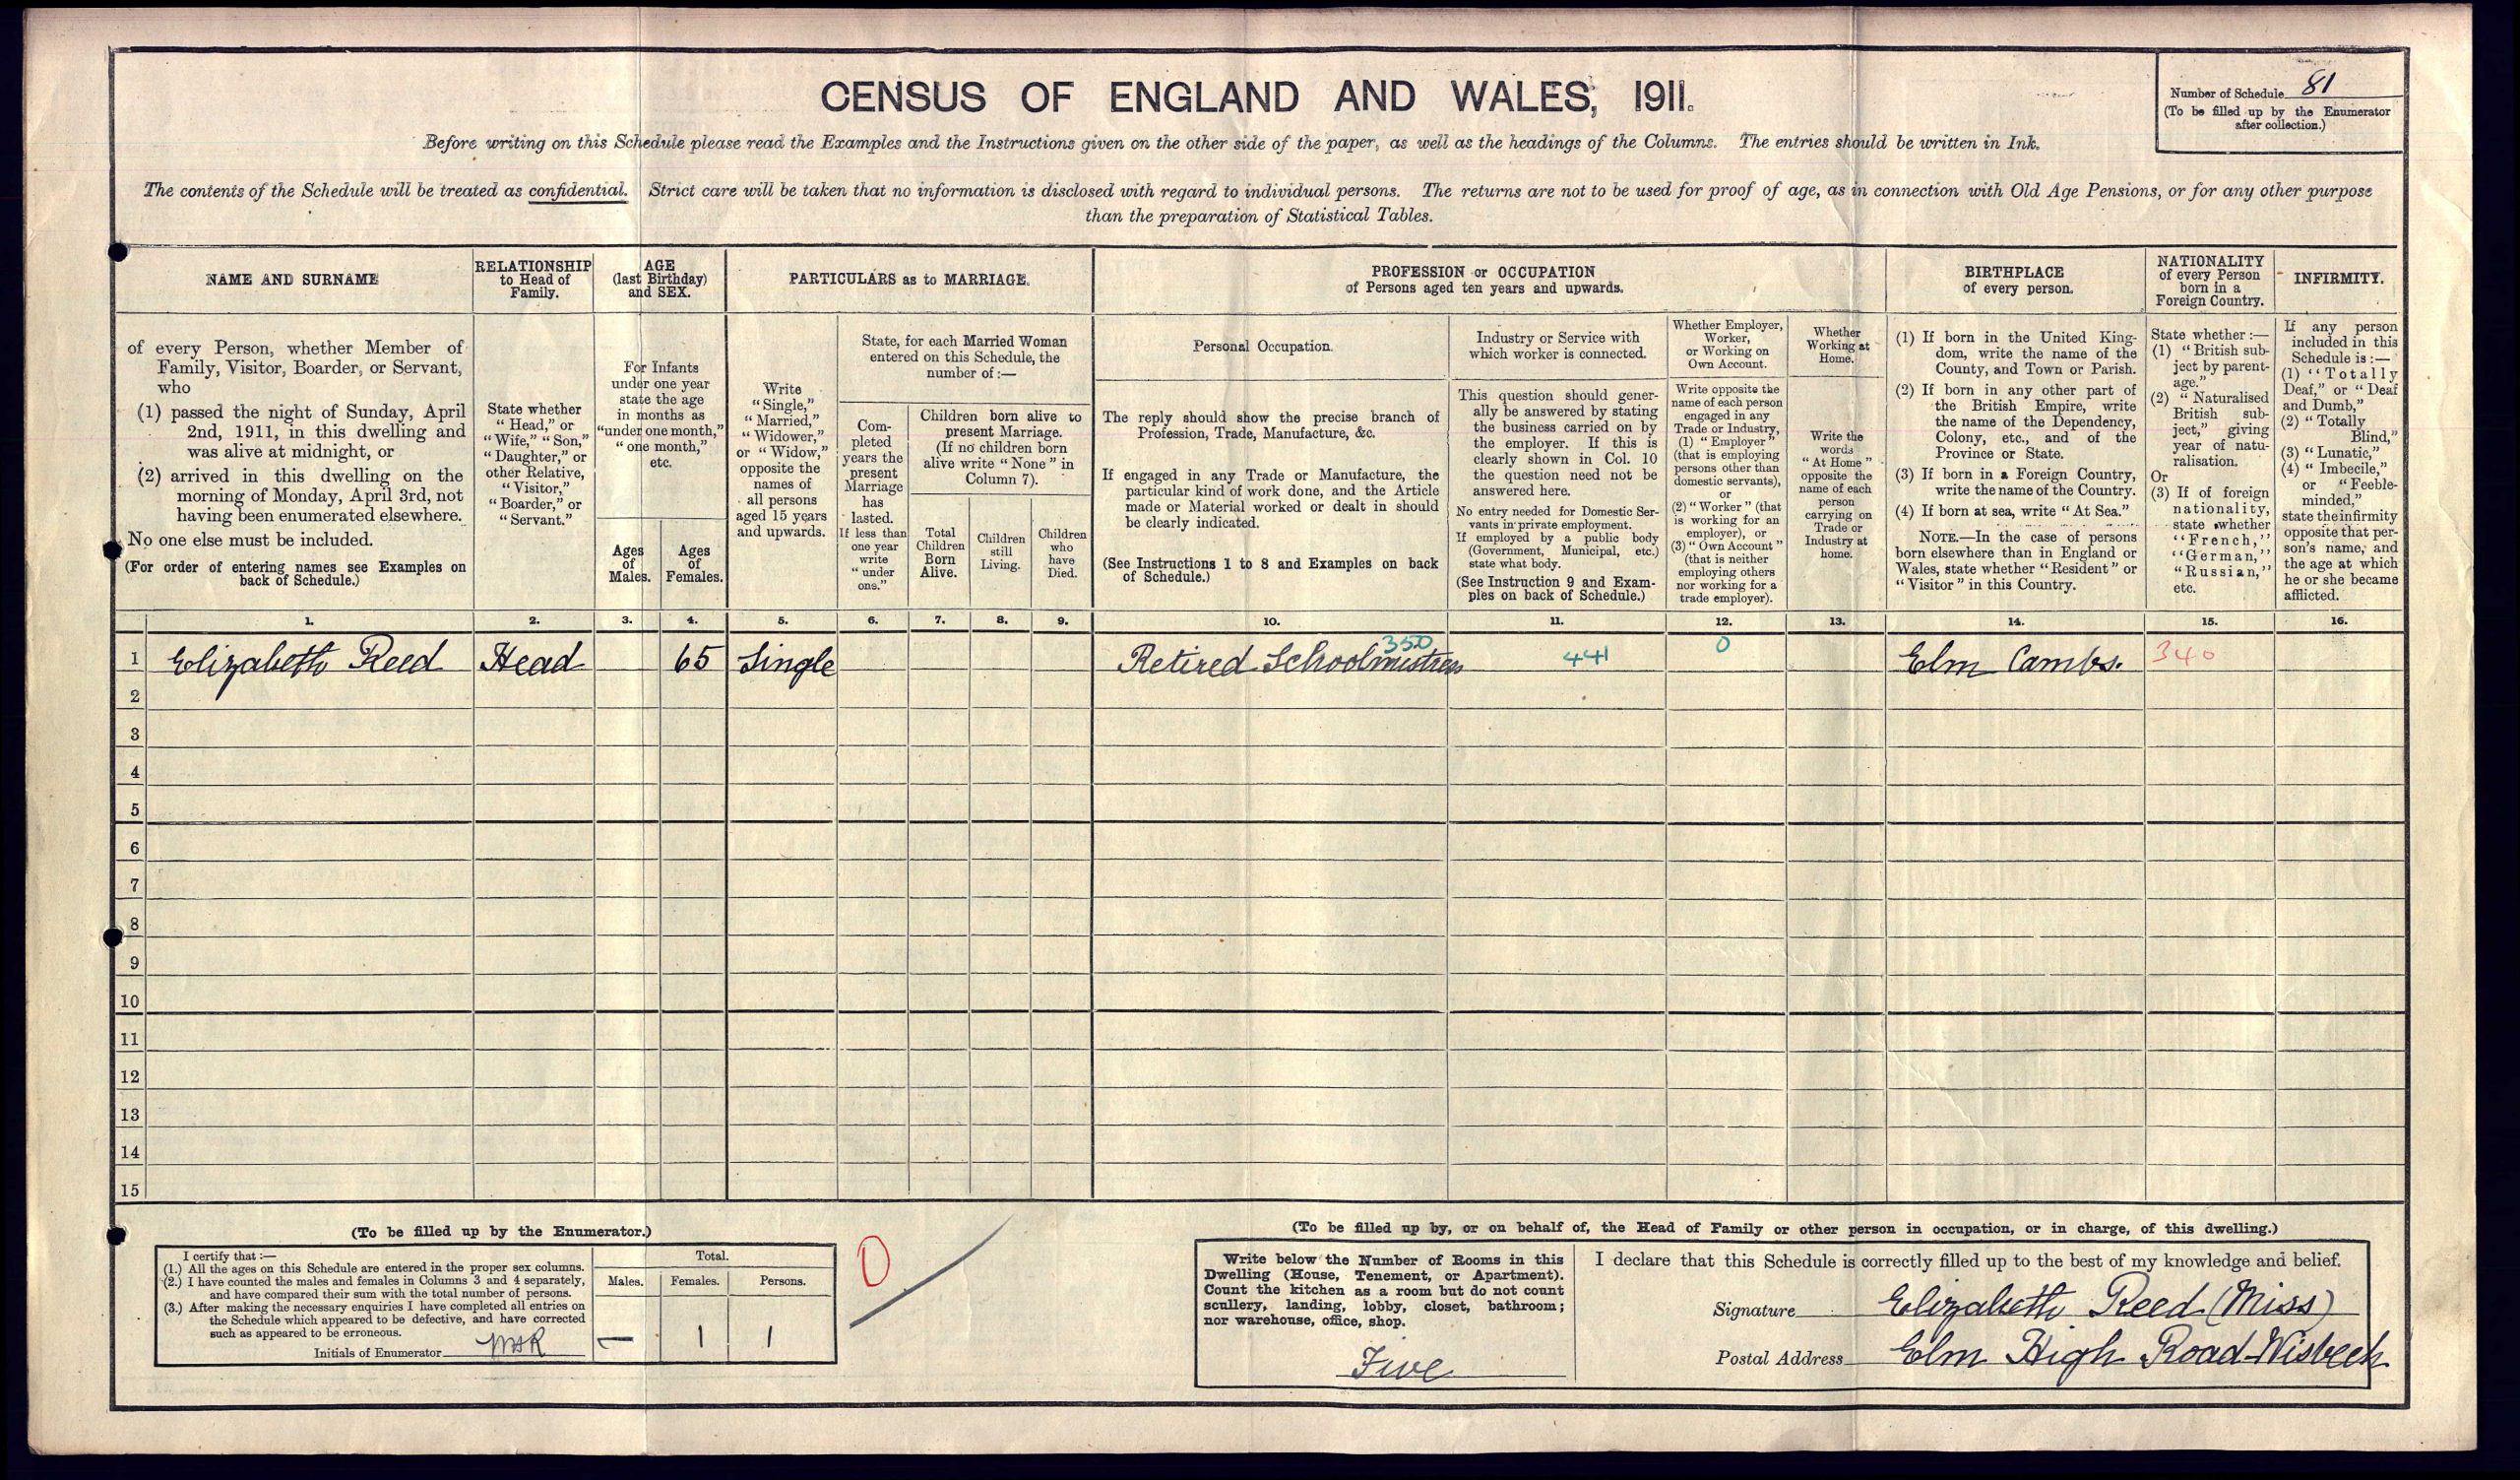 CENSUS OF ENGLAND AND WALES, 1911.
Number of Schedule 81
(To be filled up by the Enumerator
after collection.)
Before writing on this Schedule please read the Examples and the Instructions given on the other side of the paper, as well as the headings of the Columns. The entries should be written in Ink.
The contents of the Schedule will be treated as confidential. Strict care will be taken that no information is disclosed with regard to individual persons. The returns are not to be used for proof of age, as in connection with Old Age Pensions, or for any other purpose
than the preparation of Statistical Tables.
NAME AND SURNAME
of every Person, whether Member of
Family, Visitor, Boarder, or Servant,
who
(1) passed the night of Sunday, April
2nd, 1911, in this dwelling and
was alive at midnight, or
(2) arrived in this dwelling on the
morning of Monday, April 3rd, not
having been enumerated elsewhere.
No one else must be included.
(For order of entering names see Examples on
back of Schedule.)
RELATIONSHIP
to Head of
Family.
State whether
"Head," or
"Wife," "Son,"
"Daughter," or
other Relative,
"Visitor,"
"Boarder," or
"Servant."
AGE
(last Birthday)
and SEX.
For Infants
under one year
state the age
in months as
"under one month,"
"one month,"
etc.
Ages
of
Males.
Ages
of
Females.
PARTICULARS as to MARRIAGE.
Write
"Single,"
"Married,"
"Widower,"
or "Widow,"
opposite the
names of
all persons
aged 15 years
and upwards.
State, for each Married Woman
entered on this Schedule, the
number of:—
Com-
pleted
years the
present
Marriage
has
lasted.
If less than
one year
write
"under
one."
Children born alive to
present Marriage.
(If no children born
alive write "None" in
Column 7).
Total
Children
Born
Alive.
Children
still
Living.
Children
who
have
Died.
PROFESSION or OCCUPATION
of Persons aged ten years and upwards.
Personal Occupation.
The reply should show the precise branch of
Profession, Trade, Manufacture, &c.
If engaged in any Trade or Manufacture, the
particular kind of work done, and the Article
made or Material worked or dealt in should
be clearly indicated.
(See Instructions 1 to 8 and Examples on back
of Schedule.)
Industry or Service with
which worker is connected.
This question should gener-
ally be answered by stating
the business carried on by
the employer. If this is
clearly shown in Col. 10
the question need not be
answered here.
No entry needed for Domestic Ser-
vants in private employment.
If employed by a public body
(Government, Municipal, etc.)
state what body.
(See Instruction 9 and Exam-
ples on back of Schedule.)
Whether Employer,
Worker,
or Working on
Own Account.
Write opposite the
name of each person
engaged in any
Trade or Industry,
(1) "Employer"
(that is employing
persons other than
domestic servants),
or
(2) "Worker" (that
is working for an
employer), or
(3) "Own Account"
(that is neither
employing others
nor working for a
trade employer).
Whether
Working at
Home.
Write the
words
"At Home"
opposite the
name of each
person
carrying on
Trade or
Industry at
home.
BIRTHPLACE
of every person.
(1) If born in the United King-
dom, write the name of the
County, and Town or Parish.
(2) If born in any other part of
the British Empire, write
the name of the Dependency,
Colony, etc., and of the
Province or State.
(3) If born in a Foreign Country,
write the name of the Country.
(4) If born at sea, write "At Sea."
NOTE.—In the case of persons
born elsewhere than in England or
Wales, state whether "Resident" or
"Visitor" in this Country.
NATIONALITY
of every Person
born in a
Foreign Country.
State whether:—
(1) "British sub-
ject by parent-
age."
(2) "Naturalised
British sub-
ject," giving
year of natu-
ralisation.
Or
(3) If of foreign
nationality,
state whether
"French,"
"German,"
"Russian,"
etc.
INFIRMITY.
If any person
included in this
Schedule is:—
(1) "Totally
Deaf," or "Deaf
and Dumb,"
(2) "Totally
Blind,"
(3) "Lunatic,"
(4) "Imbecile,"
or "Feeble-
minded,"
state the infirmity
opposite that per-
son's name, and
the age at which
he or she became
afflicted.
1. 2. 3. 4. 5. 6. 7. 8. 9. 10. 11. 12. 13. 14. 15. 16.
1 Elizabeth Reed Head 65 Single Retired Schoolmistress 350 441 0 Elm Cambs. 340
2
3
4
5
6
7
8
9
10
11
12
13
14
15
(To be filled up by the Enumerator.)
I certify that:—
(1.) All the ages on this Schedule are entered in the proper sex columns.
(2.) I have counted the males and females in Columns 3 and 4 separately,
and have compared their sum with the total number of persons.
(3.) After making the necessary enquiries I have completed all entries on
the Schedule which appeared to be defective, and have corrected
such as appeared to be erroneous.
Initials of Enumerator
Total.
Males. Females. Persons.
— 1 1
(To be filled up by, or on behalf of, the Head of Family or other person in occupation, or in charge, of this dwelling.)
Write below the Number of Rooms in this
Dwelling (House, Tenement, or Apartment).
Count the kitchen as a room but do not count
scullery, landing, lobby, closet, bathroom;
nor warehouse, office, shop.
Five
I declare that this Schedule is correctly filled up to the best of my knowledge and belief.
Signature Elizabeth Reed (Miss)
Postal Address Elm High Road Wisbech